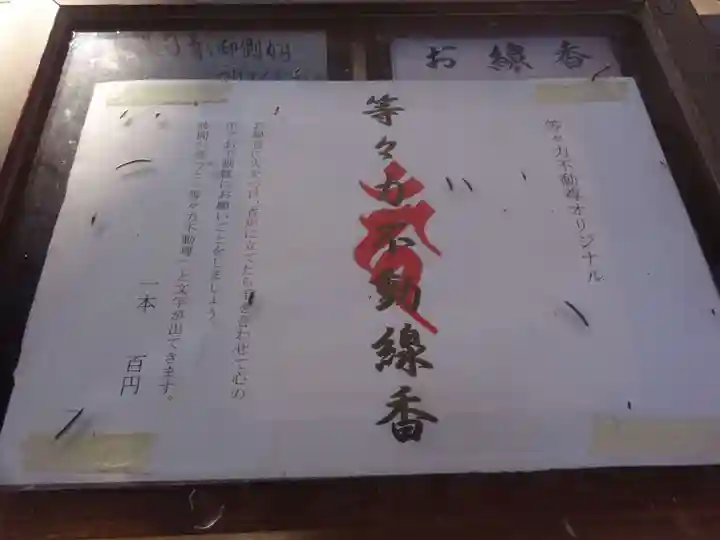 お線香
等々力不動尊オリジナル
等々力不動線香
お線香に火をつけ、香炉に立てたら手を合わせて心の
中でお不動様にお願いごとをしましょう。
時間が経つと「等々力不動尊」と文字が出てきます。
一本 百円